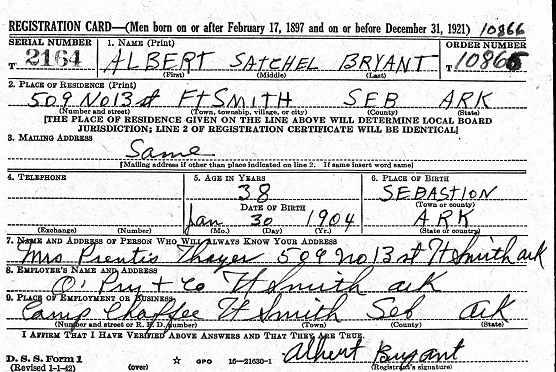 REGISTRATION CARD—(Men born on or after February 17, 1897 and on or before December 31, 1921) 10866
SERIAL NUMBER 1. NAME (Print) ORDER NUMBER
T 2164 ALBERT SATCHEL BRYANT T 10866
(First) (Middle) (Last)
2. PLACE OF RESIDENCE (Print)
509 No 13 st Ft SMITH SEB ARK
(Number and street) (Town, township, village, or city) (County) (State)
[THE PLACE OF RESIDENCE GIVEN ON THE LINE ABOVE WILL DETERMINE LOCAL BOARD
JURISDICTION; LINE 2 OF REGISTRATION CERTIFICATE WILL BE IDENTICAL]
3. MAILING ADDRESS
Same
[Mailing address if other than place indicated on line 2. If same insert word same]
4. TELEPHONE 5. AGE IN YEARS 6. PLACE OF BIRTH
38 SEBASTION
DATE OF BIRTH (Town or county)
Jan 30 1904 ARK
(Exchange) (Number) (Mo.) (Day) (Yr.) (State or country)
7. NAME AND ADDRESS OF PERSON WHO WILL ALWAYS KNOW YOUR ADDRESS
Mrs Prentis Thayer 509 No 13 st Ft Smith ark
8. EMPLOYER'S NAME AND ADDRESS
O' Pry + Co Ft Smith ark
9. PLACE OF EMPLOYMENT OR BUSINESS
Camp Chaffee Ft Smith Seb ark
(Number and street or R. F. D. number) (Town) (County) (State)
I AFFIRM THAT I HAVE VERIFIED ABOVE ANSWERS AND THAT THEY ARE TRUE.
Albert Bryant
D. S. S. Form 1
(Revised 1-1-42) (over) GPO 16—21630-1 (Registrant's signature)